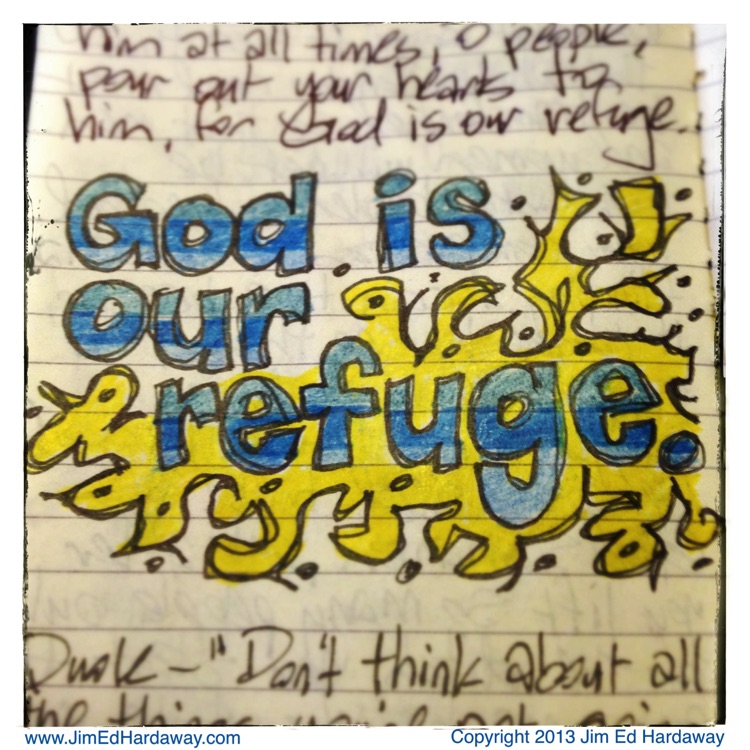 him at all times, O people,
pour out your hearts to
him, for God is our refuge.
God is
our
refuge.
"Don't think about all
the things you're not
www.JimEdHardaway.com
Copyright 2013 Jim Ed Hardaway